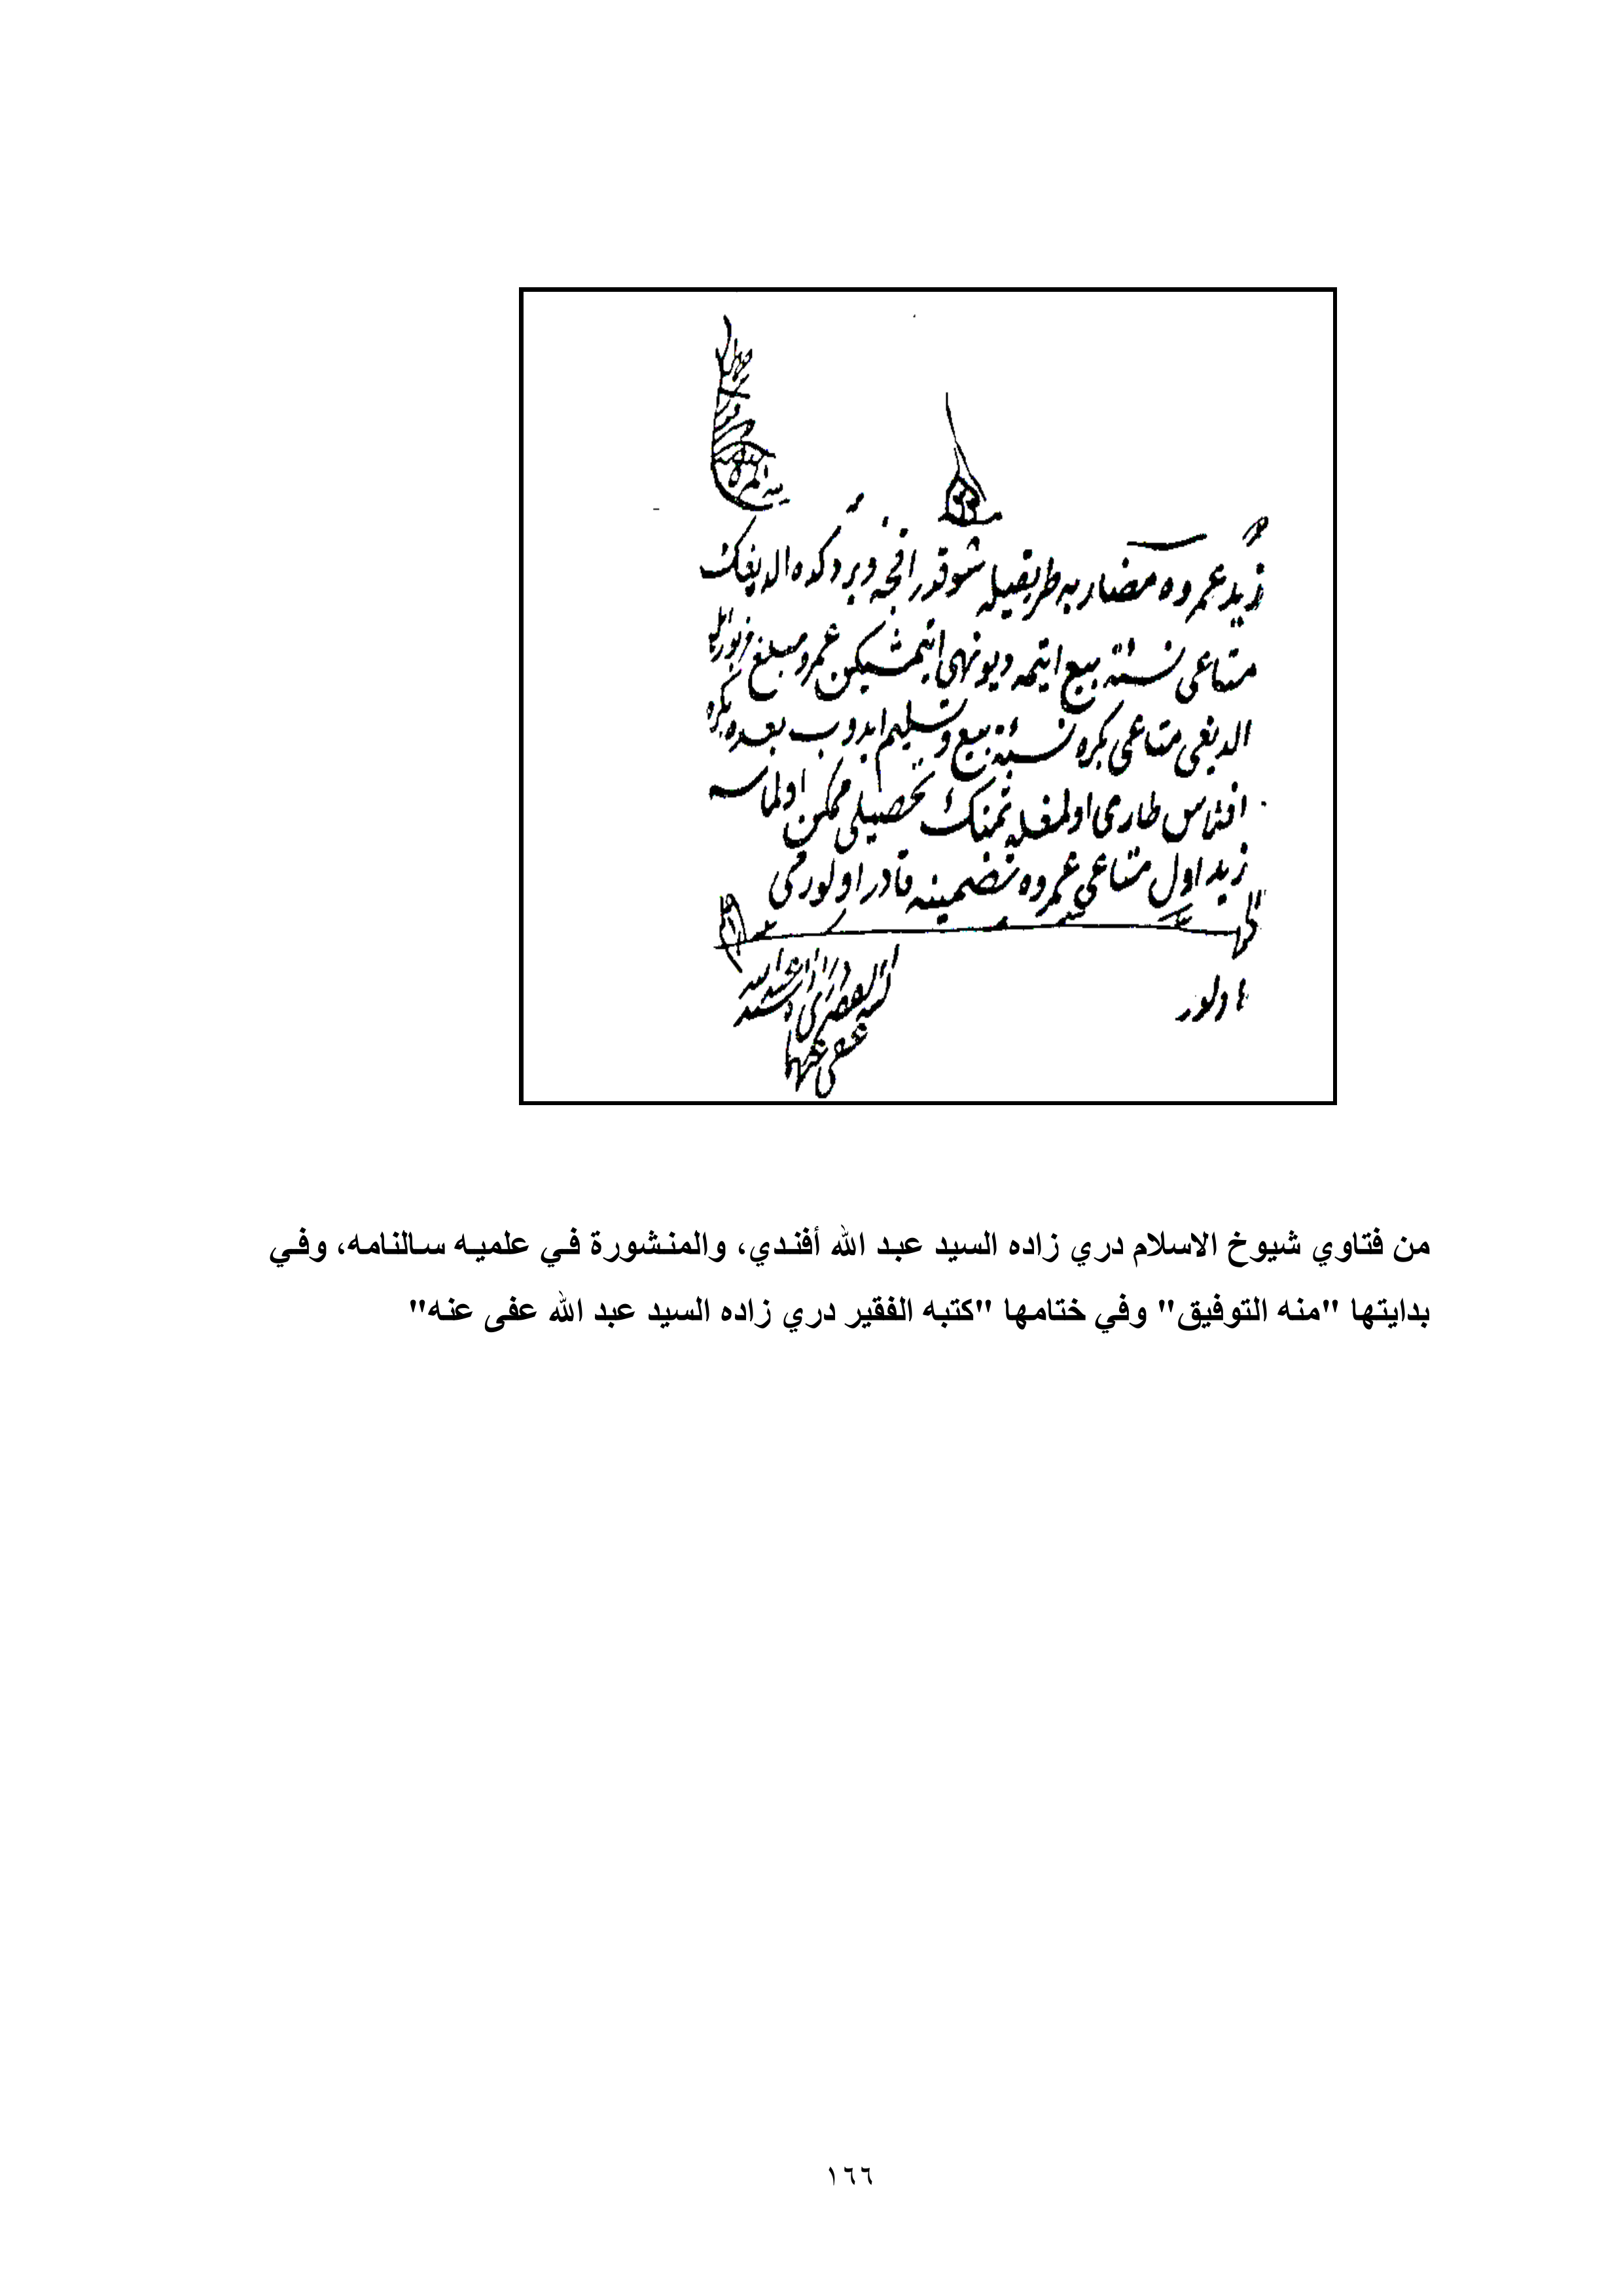 زيد عمروه مضاربه طريقيله شوقدر اقچه ويردكده الديغك
متاعى نسئة بيع ايتمه ديو نهى ايتمشيكن عمرو مبلغ مزبور ايله
الديغى متاعى بكره نسئة بيع وتسليم ايدوب بعده بكره
افلاس طارى اولمغله ثمنك تحصيلى ممكن اولماسه
زيد اول متاعى عمروه تضمينه قادر اولورمى
اولور
من فتاوي شيوخ الاسلام دري زاده السيد عبد الله أفندي، والمنشورة في علميه سالنامه، وفي
بدايتها "منه التوفيق" وفي ختامها "كتبه الفقير دري زاده السيد عبد الله عفى عنه"
١٦٦